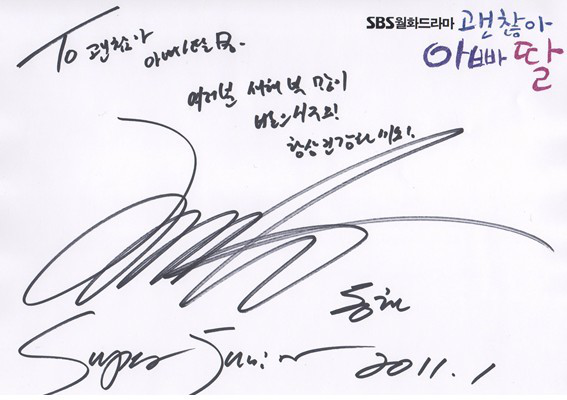 To 괜찮아
아빠딸 多.
SBS월화드라마 괜찮아
아빠 딸
여러분 새해 복 많이
받으시구요!
항상 건강하시요!
동해
Super Junior 2011.1